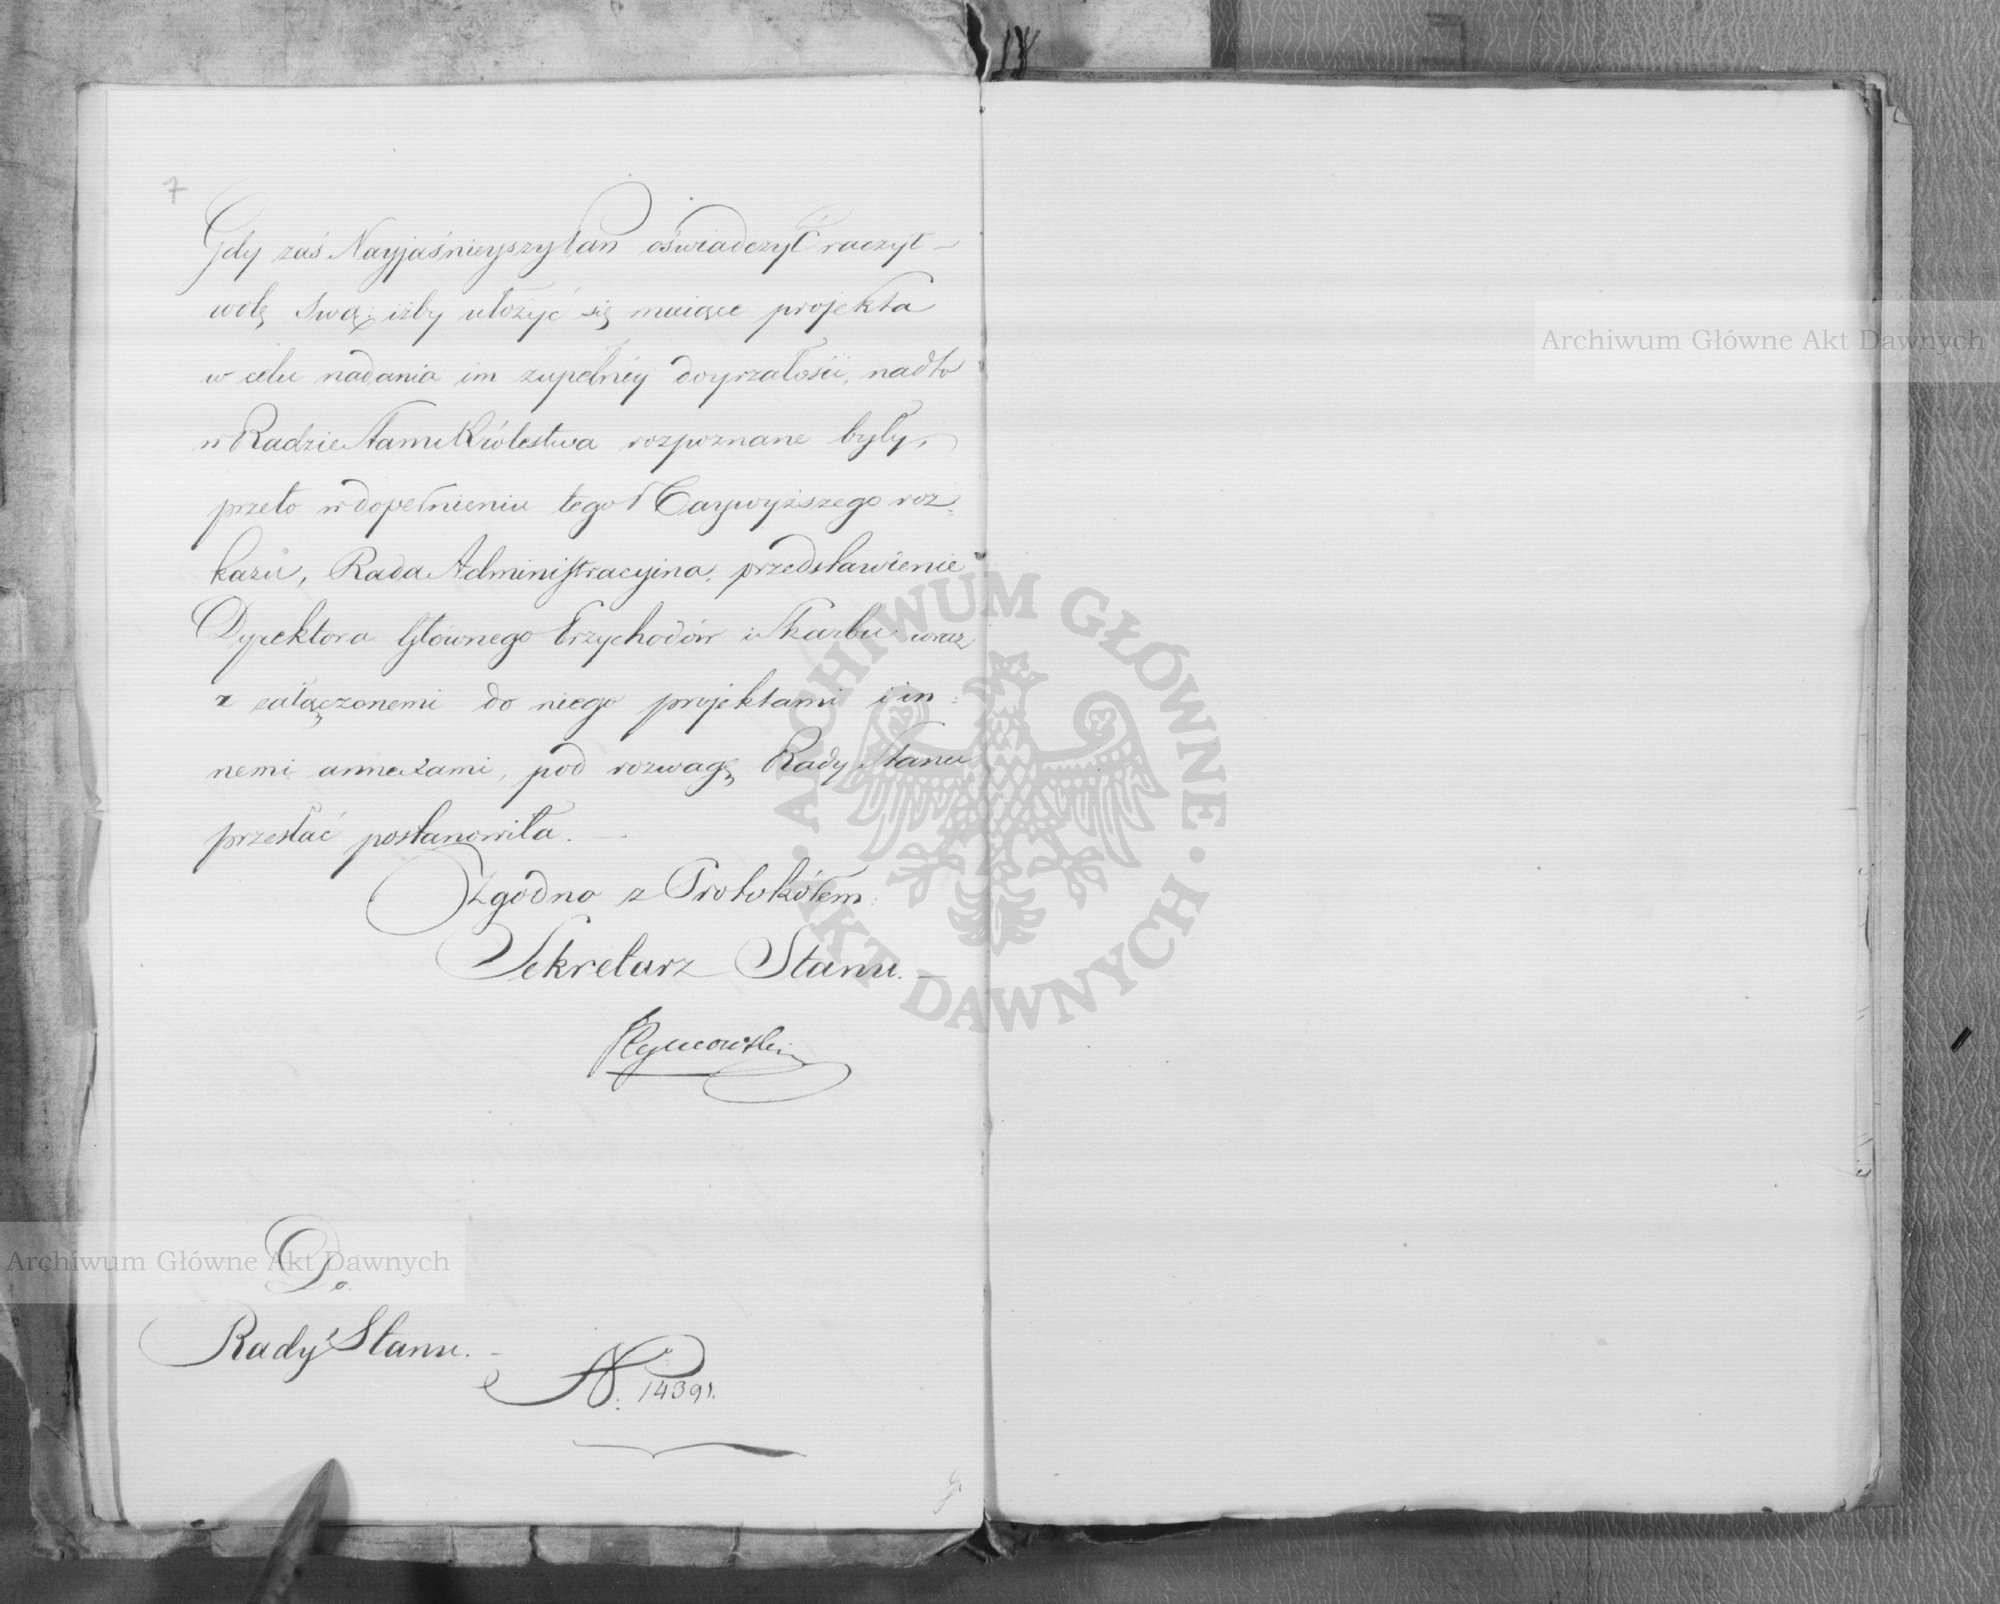 7
Gdy zaś Nayjaśnieyszy Pan oświadczyć raczył
wolę swą; iżby ułożyć się maiące projekta
w celu nadania im zupełnéy doyrzałości, nadto
w Radzie Stanu Królestwa rozpoznane były,
przeto w dopełnieniu tego Naywyższego roz=
kazu, Rada Administracyina, przedstawienie
Dyrektora Głównego Przychodów i Skarbu wraz
z załączonemi do niego projektami i in=
nemi annexami, pod rozwagę Rady Stanu
przesłać postanowiła.
Zgodno z Protokółem:
Sekretarz Stanu.
Do
Rady Stanu.
N. 14391.
Archiwum Główne Akt Dawnych
Archiwum Główne Akt Dawnych
ARCHIWUM GŁÓWNE · AKT DAWNYCH ·